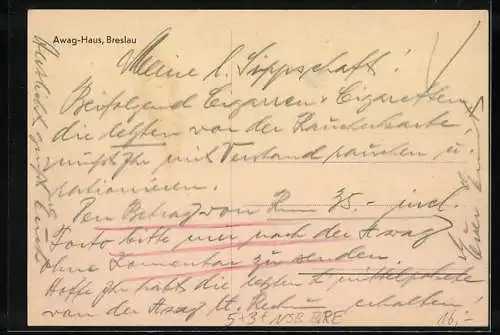 Awag-Haus, Breslau
Meine l. Sippschaft!
Beifolgend Cigarren & Cigaretten,
die letzten von der Raucherkarte,
müßt Ihr mit Verstand rauchen u.
rationieren.
Den Betrag von Rm 35.- incl.
Porto bitte nur nach der Awag
ohne Kommentar zu senden.
Hoffe Ihr habt die letzten
von der Awag lt. erhalten!
herzlichst grüßt
Euch
Euer
16,-